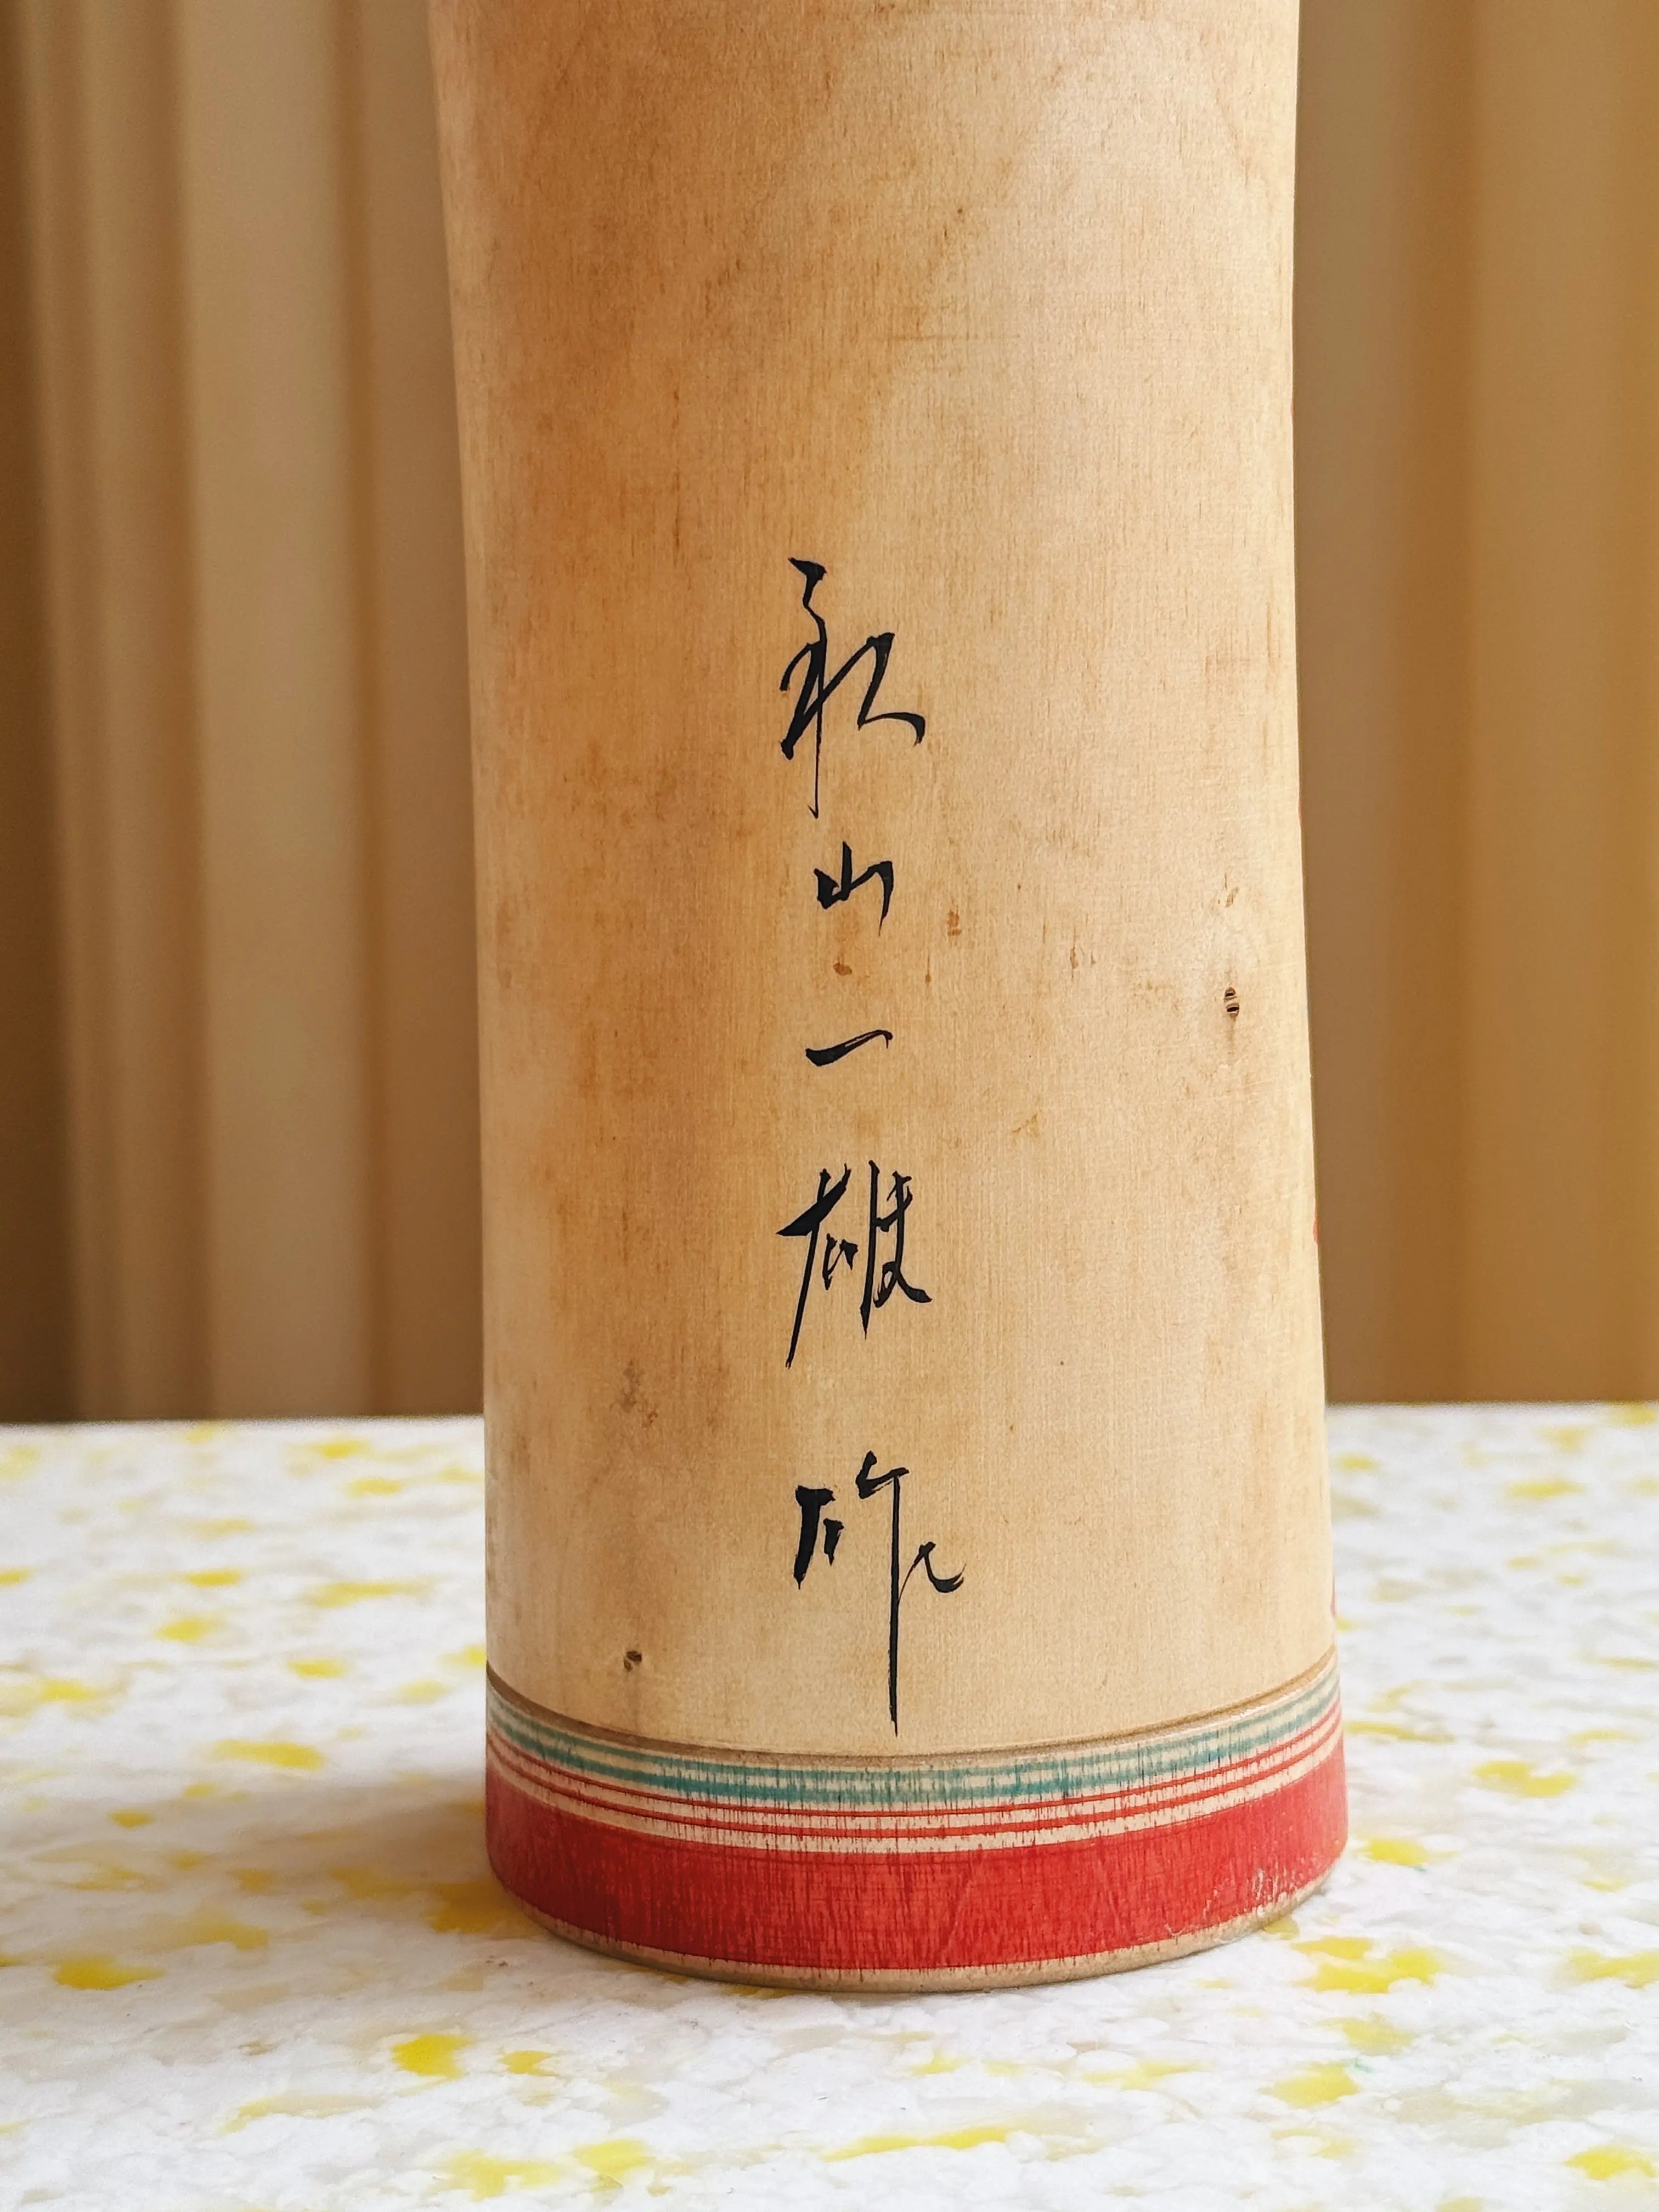 秋山一雄作